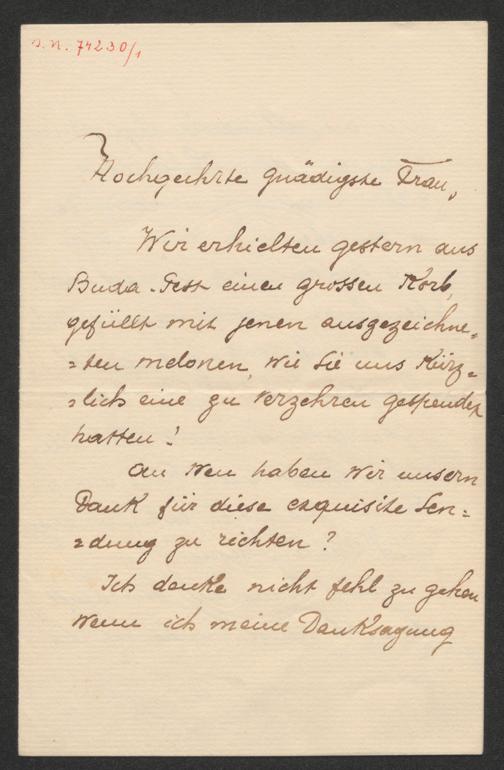 I. N. 74230/1
Hochgeehrte gnädigste Frau,
Wir erhielten gestern aus
Buda-Pest einen grossen Korb,
gefüllt mit jenen ausgezeichne=
=ten Melonen, wie Sie uns Kürz=
=lich eine zu verzehren gespendet
hatten!
An wen haben wir unsern
Dank für diese exquisite Sen=
=dung zu richten?
Ich denke nicht fehl zu gehen
wenn ich meine Danksagung